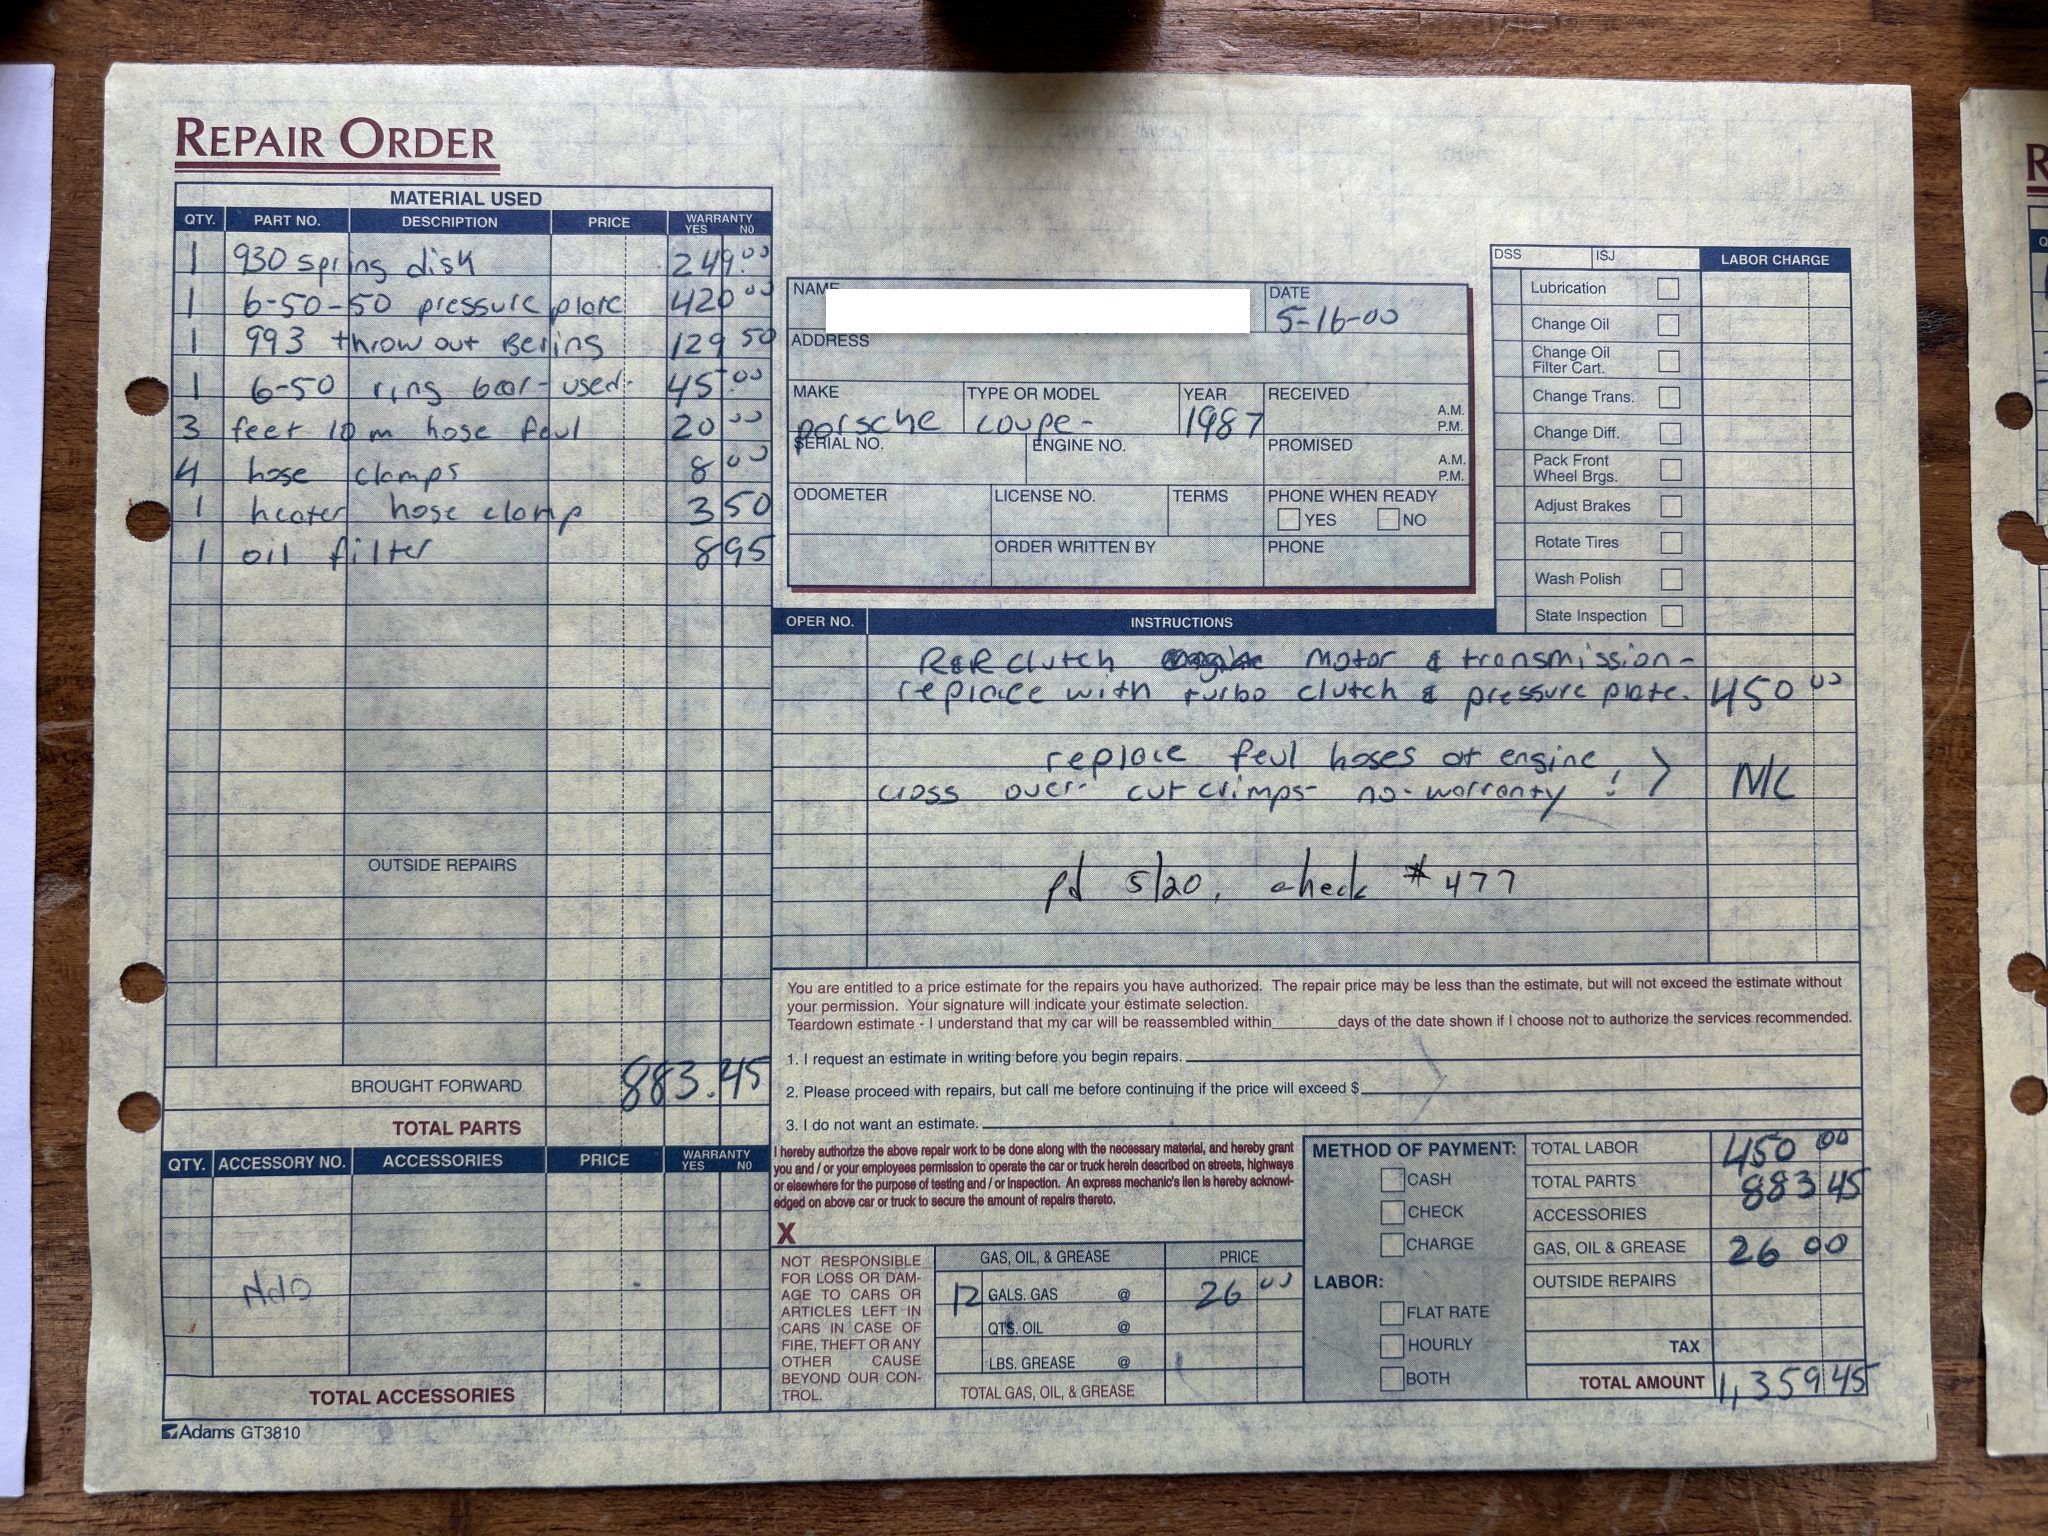 REPAIR ORDER
MATERIAL USED
QTY. PART NO. DESCRIPTION PRICE WARRANTY YES NO
1 930 spring disk 249.00
1 6-50-50 pressure plate 420 00
1 993 throw out Bering 129 50
1 6-50 ring gear- used- 45.00
3 feet 10 m hose feul 20 00
4 hose clamps 8 00
1 heater hose clamp 3 50
1 oil filter 8 95
OUTSIDE REPAIRS
BROUGHT FORWARD 883.45
TOTAL PARTS
QTY. ACCESSORY NO. ACCESSORIES PRICE WARRANTY YES NO
TOTAL ACCESSORIES
Adams GT3810
NAME
DATE
5-16-00
ADDRESS
MAKE TYPE OR MODEL YEAR RECEIVED A.M. P.M.
porsche coupe- 1987
SERIAL NO. ENGINE NO. PROMISED A.M. P.M.
ODOMETER LICENSE NO. TERMS PHONE WHEN READY
YES NO
ORDER WRITTEN BY PHONE
DSS ISJ LABOR CHARGE
Lubrication
Change Oil
Change Oil
Filter Cart.
Change Trans.
Change Diff.
Pack Front
Wheel Brgs.
Adjust Brakes
Rotate Tires
Wash Polish
State Inspection
OPER NO. INSTRUCTIONS
R&R clutch motor & transmission-
replace with turbo clutch & pressure plate. 450 00
replace feul hoses at engine
cross over- cut crimps- no-warranty ! > N/C
pd 5/20, check # 477
You are entitled to a price estimate for the repairs you have authorized. The repair price may be less than the estimate, but will not exceed the estimate without
your permission. Your signature will indicate your estimate selection.
Teardown estimate - I understand that my car will be reassembled within______days of the date shown if I choose not to authorize the services recommended.
1. I request an estimate in writing before you begin repairs.
2. Please proceed with repairs, but call me before continuing if the price will exceed $
3. I do not want an estimate.
I hereby authorize the above repair work to be done along with the necessary material, and hereby grant
you and / or your employees permission to operate the car or truck herein described on streets, highways
or elsewhere for the purpose of testing and / or inspection. An express mechanic's lien is hereby acknowl-
edged on above car or truck to secure the amount of repairs thereto.
X
NOT RESPONSIBLE
FOR LOSS OR DAM-
AGE TO CARS OR
ARTICLES LEFT IN
CARS IN CASE OF
FIRE, THEFT OR ANY
OTHER CAUSE
BEYOND OUR CON-
TROL.
GAS, OIL, & GREASE PRICE
12 GALS. GAS @ 26 00
QTS. OIL @
LBS. GREASE @
TOTAL GAS, OIL, & GREASE
METHOD OF PAYMENT:
CASH
CHECK
CHARGE
LABOR:
FLAT RATE
HOURLY
BOTH
TOTAL LABOR 450 00
TOTAL PARTS 883 45
ACCESSORIES
GAS, OIL & GREASE 26 00
OUTSIDE REPAIRS
TAX
TOTAL AMOUNT 1,359 45
R